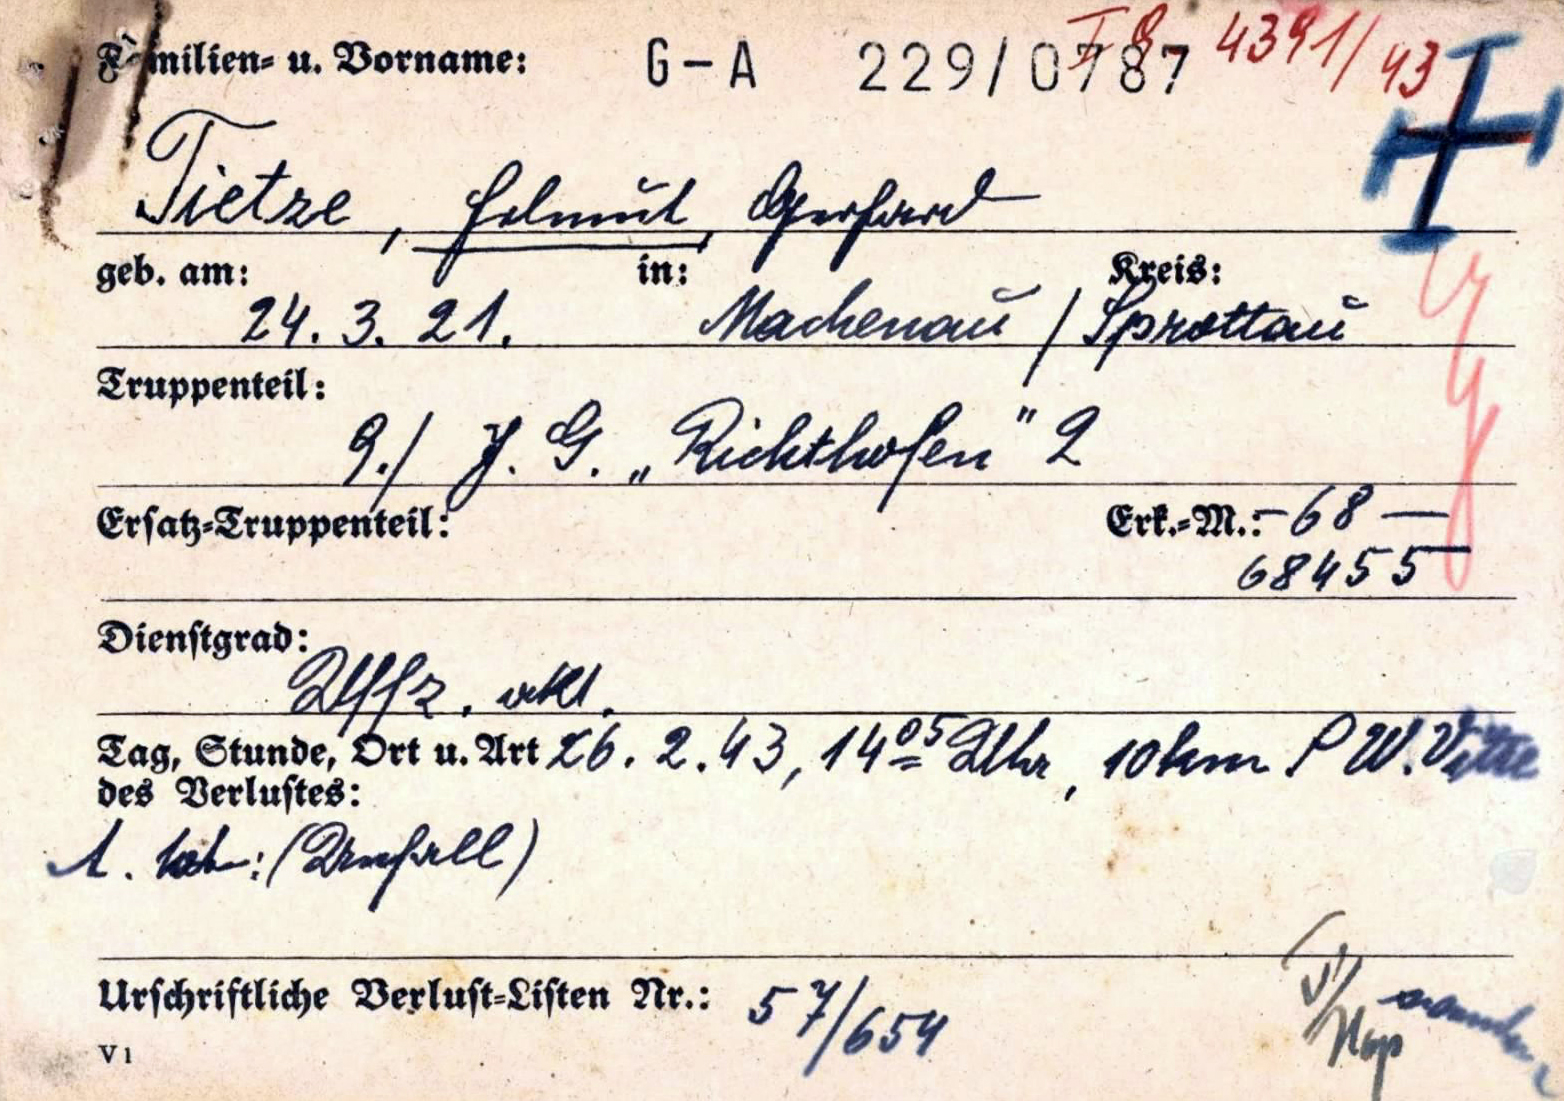 Familien- u. Vorname: G-A 229/0787 4391/43
Tietze, Helmut, Gerhard
geb. am: in: Kreis:
24. 3. 21. Machenau / Sprottau
Truppenteil:
9./ J. G. „Richthofen" 2
Ersatz-Truppenteil: Erk.-M.: - 68 -
68455
Dienstgrad:
Uffz.
Tag, Stunde, Ort u. Art 26. 2. 43, 14⁰⁵ Uhr, 10 km W.
des Verlustes:
(Unfall)
Urschriftliche Verlust-Listen Nr.: 57/654
V 1